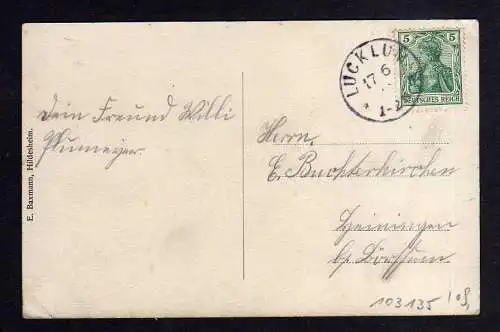 Dein Freund Willi
Plumeyer.
E. Baxmann, Hildesheim.
LUCKLUM
17 6
* 1-2
5 5
DEUTSCHES REICH
Herrn
E. Buchterkirchen
Heiningen
b/ Börssum.
103135